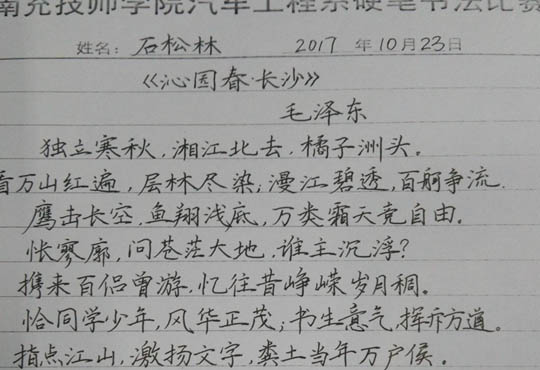 南充技师学院汽车工程系硬笔书法比赛
姓名：石松林 2017 年10月23日
《沁园春·长沙》
毛泽东
独立寒秋，湘江北去，橘子洲头。
看万山红遍，层林尽染；漫江碧透，百舸争流.
鹰击长空，鱼翔浅底，万类霜天竞自由.
怅寥廓，问苍茫大地，谁主沉浮？
携来百侣曾游，忆往昔峥嵘岁月稠。
恰同学少年，风华正茂；书生意气，挥斥方遒。
指点江山，激扬文字，粪土当年万户侯.